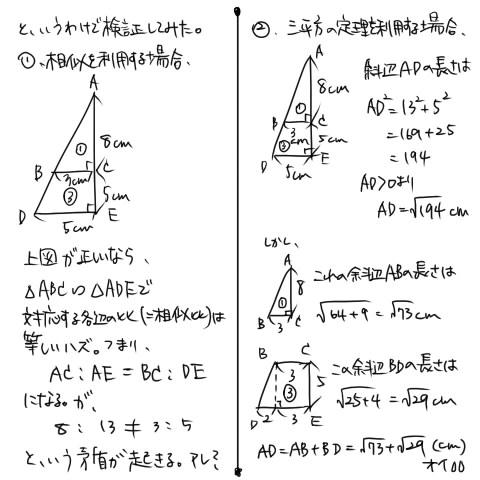 というわけで検証してみた。
①、相似を利用する場合、
A
8cm
①
B
3cm
C
③
5cm
D
5cm
E
上図が正しいなら、
△ABC∽△ADEで
対応する各辺の比(=相似比)は
等しいハズ。つまり、
AC:AE = BC:DE
になる。が、
8:13 ≠ 3:5
という矛盾が起きる。アレ?
②. 三平方の定理を利用する場合、
A
8cm
①
B
3cm
C
③
5cm
D
5cm
E
斜辺ADの長さは
AD²=13²+5²
=169+25
=194
AD>0より
AD=√194 cm
しかし、
A
8
①
B
3
C
これの斜辺ABの長さは
√64+9 = √73cm
B
C
3
③
5
D
2
3
E
この斜辺BDの長さは
√25+4 = √29cm
AD=AB+BD=√73+√29 (cm)